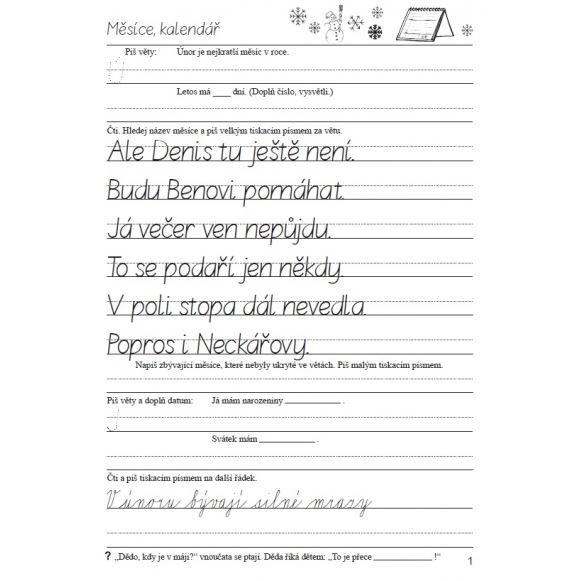 Měsíce, kalendář
Piš věty: Únor je nejkratší měsíc v roce.
Ú
Letos má ____ dní. (Doplň číslo, vysvětli.)
Čti. Hledej název měsíce a piš velkým tiskacím písmem za větu.
Ale Denis tu ještě není.
Budu Benovi pomáhat.
Já večer ven nepůjdu.
To se podaří jen někdy.
V poli stopa dál nevedla.
Popros i Neckářovy.
Napiš zbývající měsíce, které nebyly ukryté ve větách. Piš malým tiskacím písmem.
Piš věty a doplň datum: Já mám narozeniny ____________ .
J
Svátek mám ____________ .
Čti a piš tiskacím písmem na další řádek.
V únoru bývají silné mrazy
? „Dědo, kdy je v máji?“ vnoučata se ptají. Děda říká dětem: „To je přece ____________ !“
1